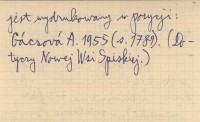 jest wydrukowany w pozycji:
Gácsová A. 1955 (s. 1789). (Do-
tyczy Nowej Wsi Spiskiej.)